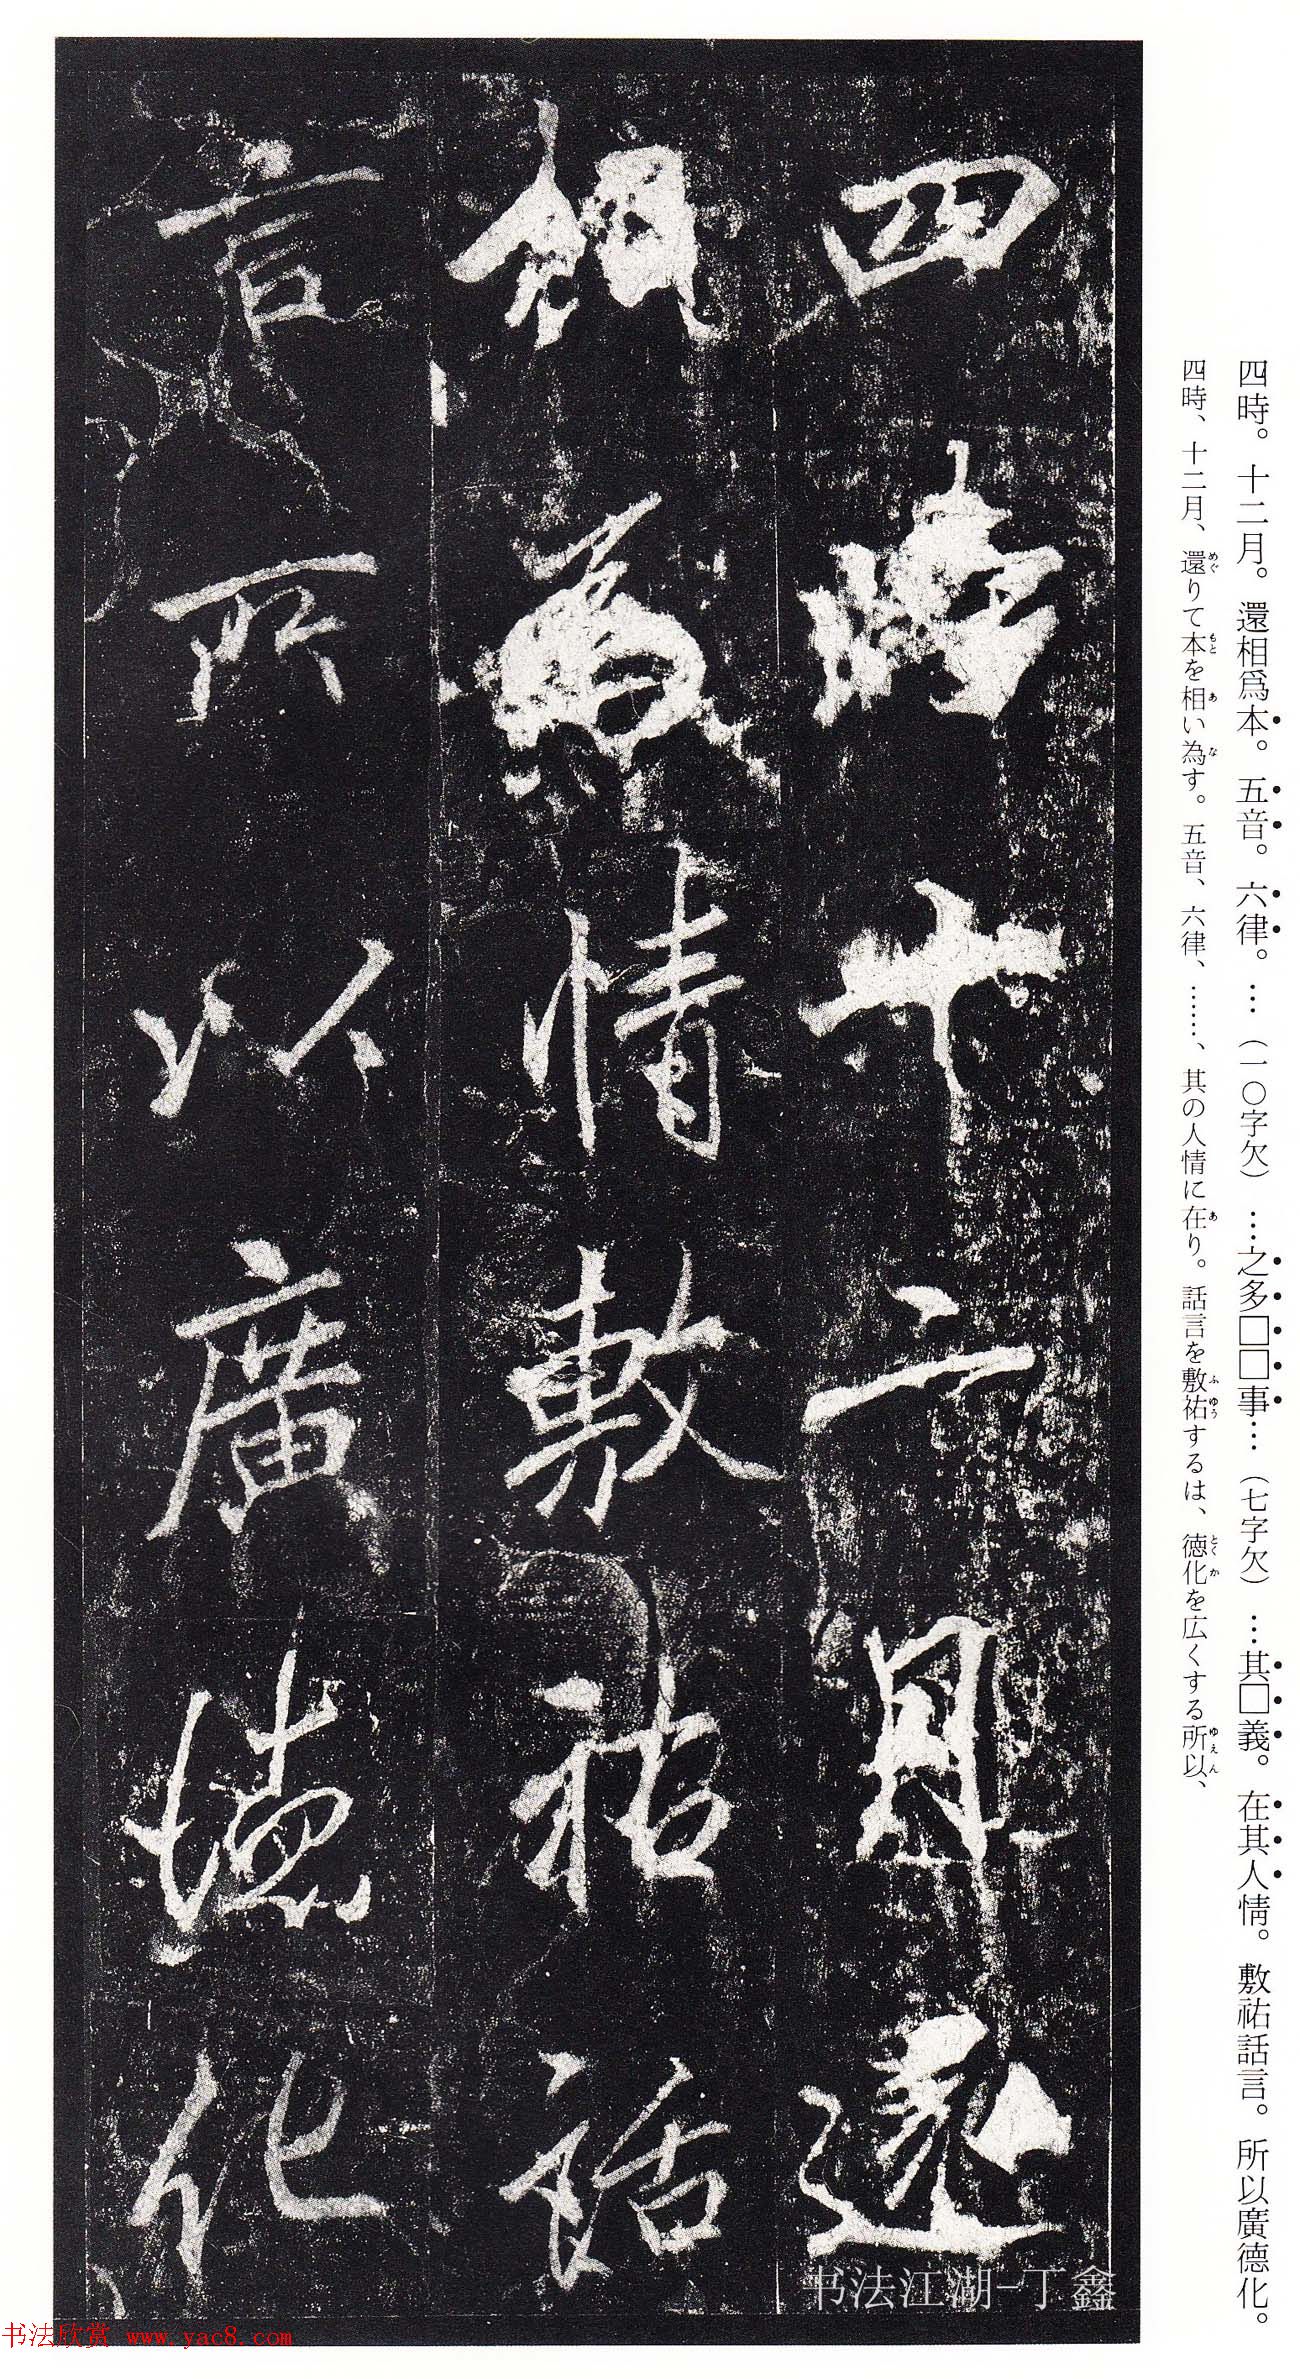 四時。十二月。還相爲本。五音。六律。…（一〇字欠）…之多□□事…（七字欠）…其□義。在其人情。敷祐話言。所以廣德化。
四時、十二月、還りて本を相い為す。五音、六律、……、其の人情に在り。話言を敷祐するは、徳化を広くする所以、
めぐ もと あ な あ ふゆう とくか ゆえん
四時十二月還
相為情敷祐話
言所以廣德化
书法江湖-丁鑫
书法欣赏 www.yac8.com